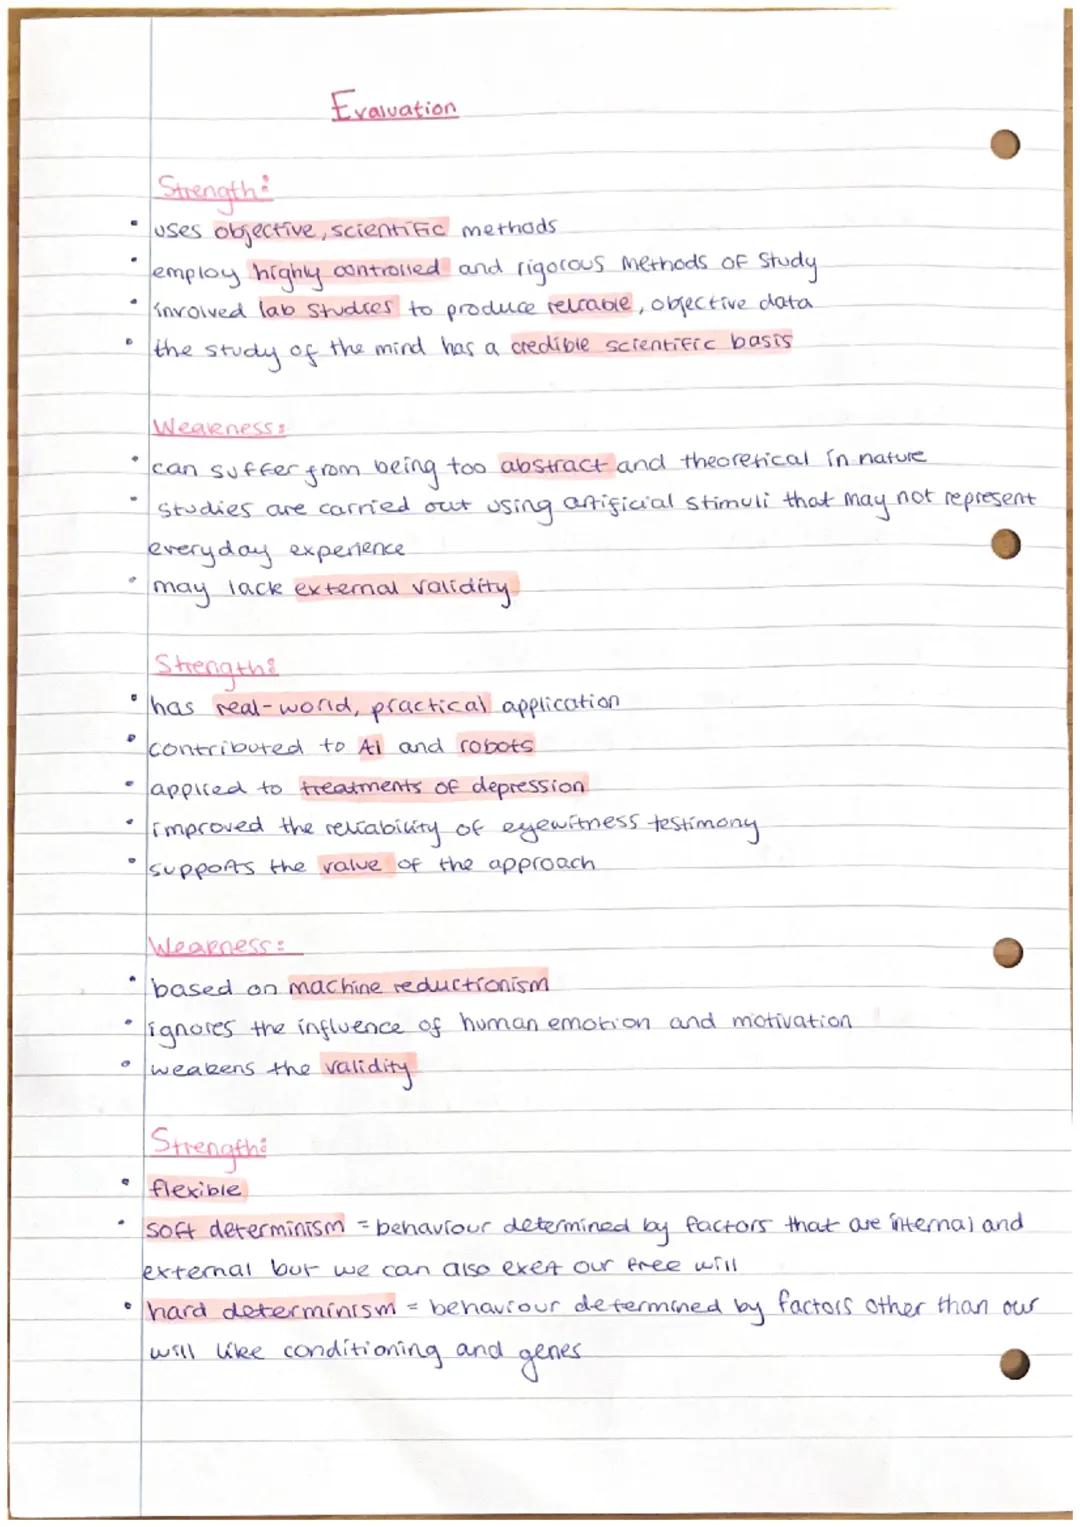 Evaluation
Strength:
• uses objective, scientific methods
• employ highly controlled and rigorous methods of study
• involved lab studies to produce reliable, objective data
• the study of the mind has a credible scientific basis
Weakness:
• can suffer from being too abstract and theoretical in nature
• studies are carried out using artificial stimuli that may not represent
everyday experience
• may lack external validity
Strength:
• has real-world, practical application
• contributed to AI and robots
• applied to treatments of depression
• improved the reliability of eyewitness testimony
• supports the value of the approach
Weakness:
• based on machine reductionism
• ignores the influence of human emotion and motivation
• weakens the validity
Strength:
• flexible
• soft determinism = behaviour determined by factors that are internal and
external but we can also exert our free will
• hard determinism = behaviour determined by factors other than our
will like conditioning and genes